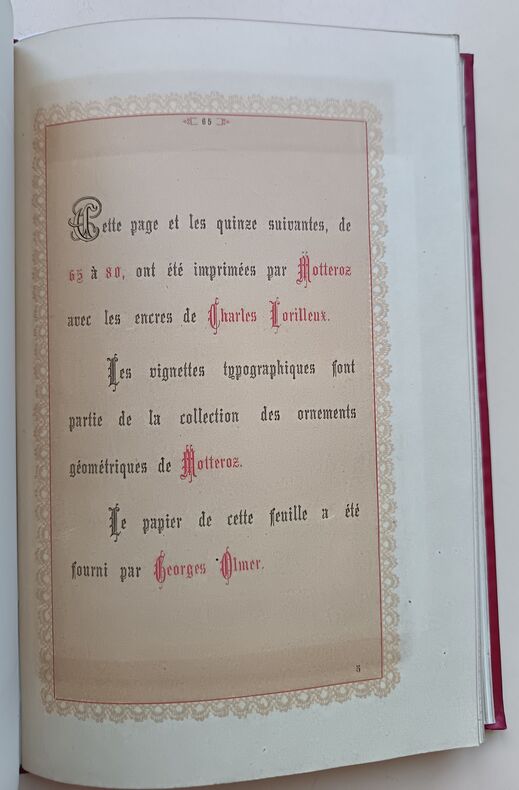 65
Cette page et les quinze suivantes, de
65 à 80, ont été imprimées par Motteroz
avec les encres de Charles Lorilleux.
Les vignettes typographiques font
partie de la collection des ornements
géométriques de Motteroz.
Le papier de cette feuille a été
fourni par Georges Olmer.
5